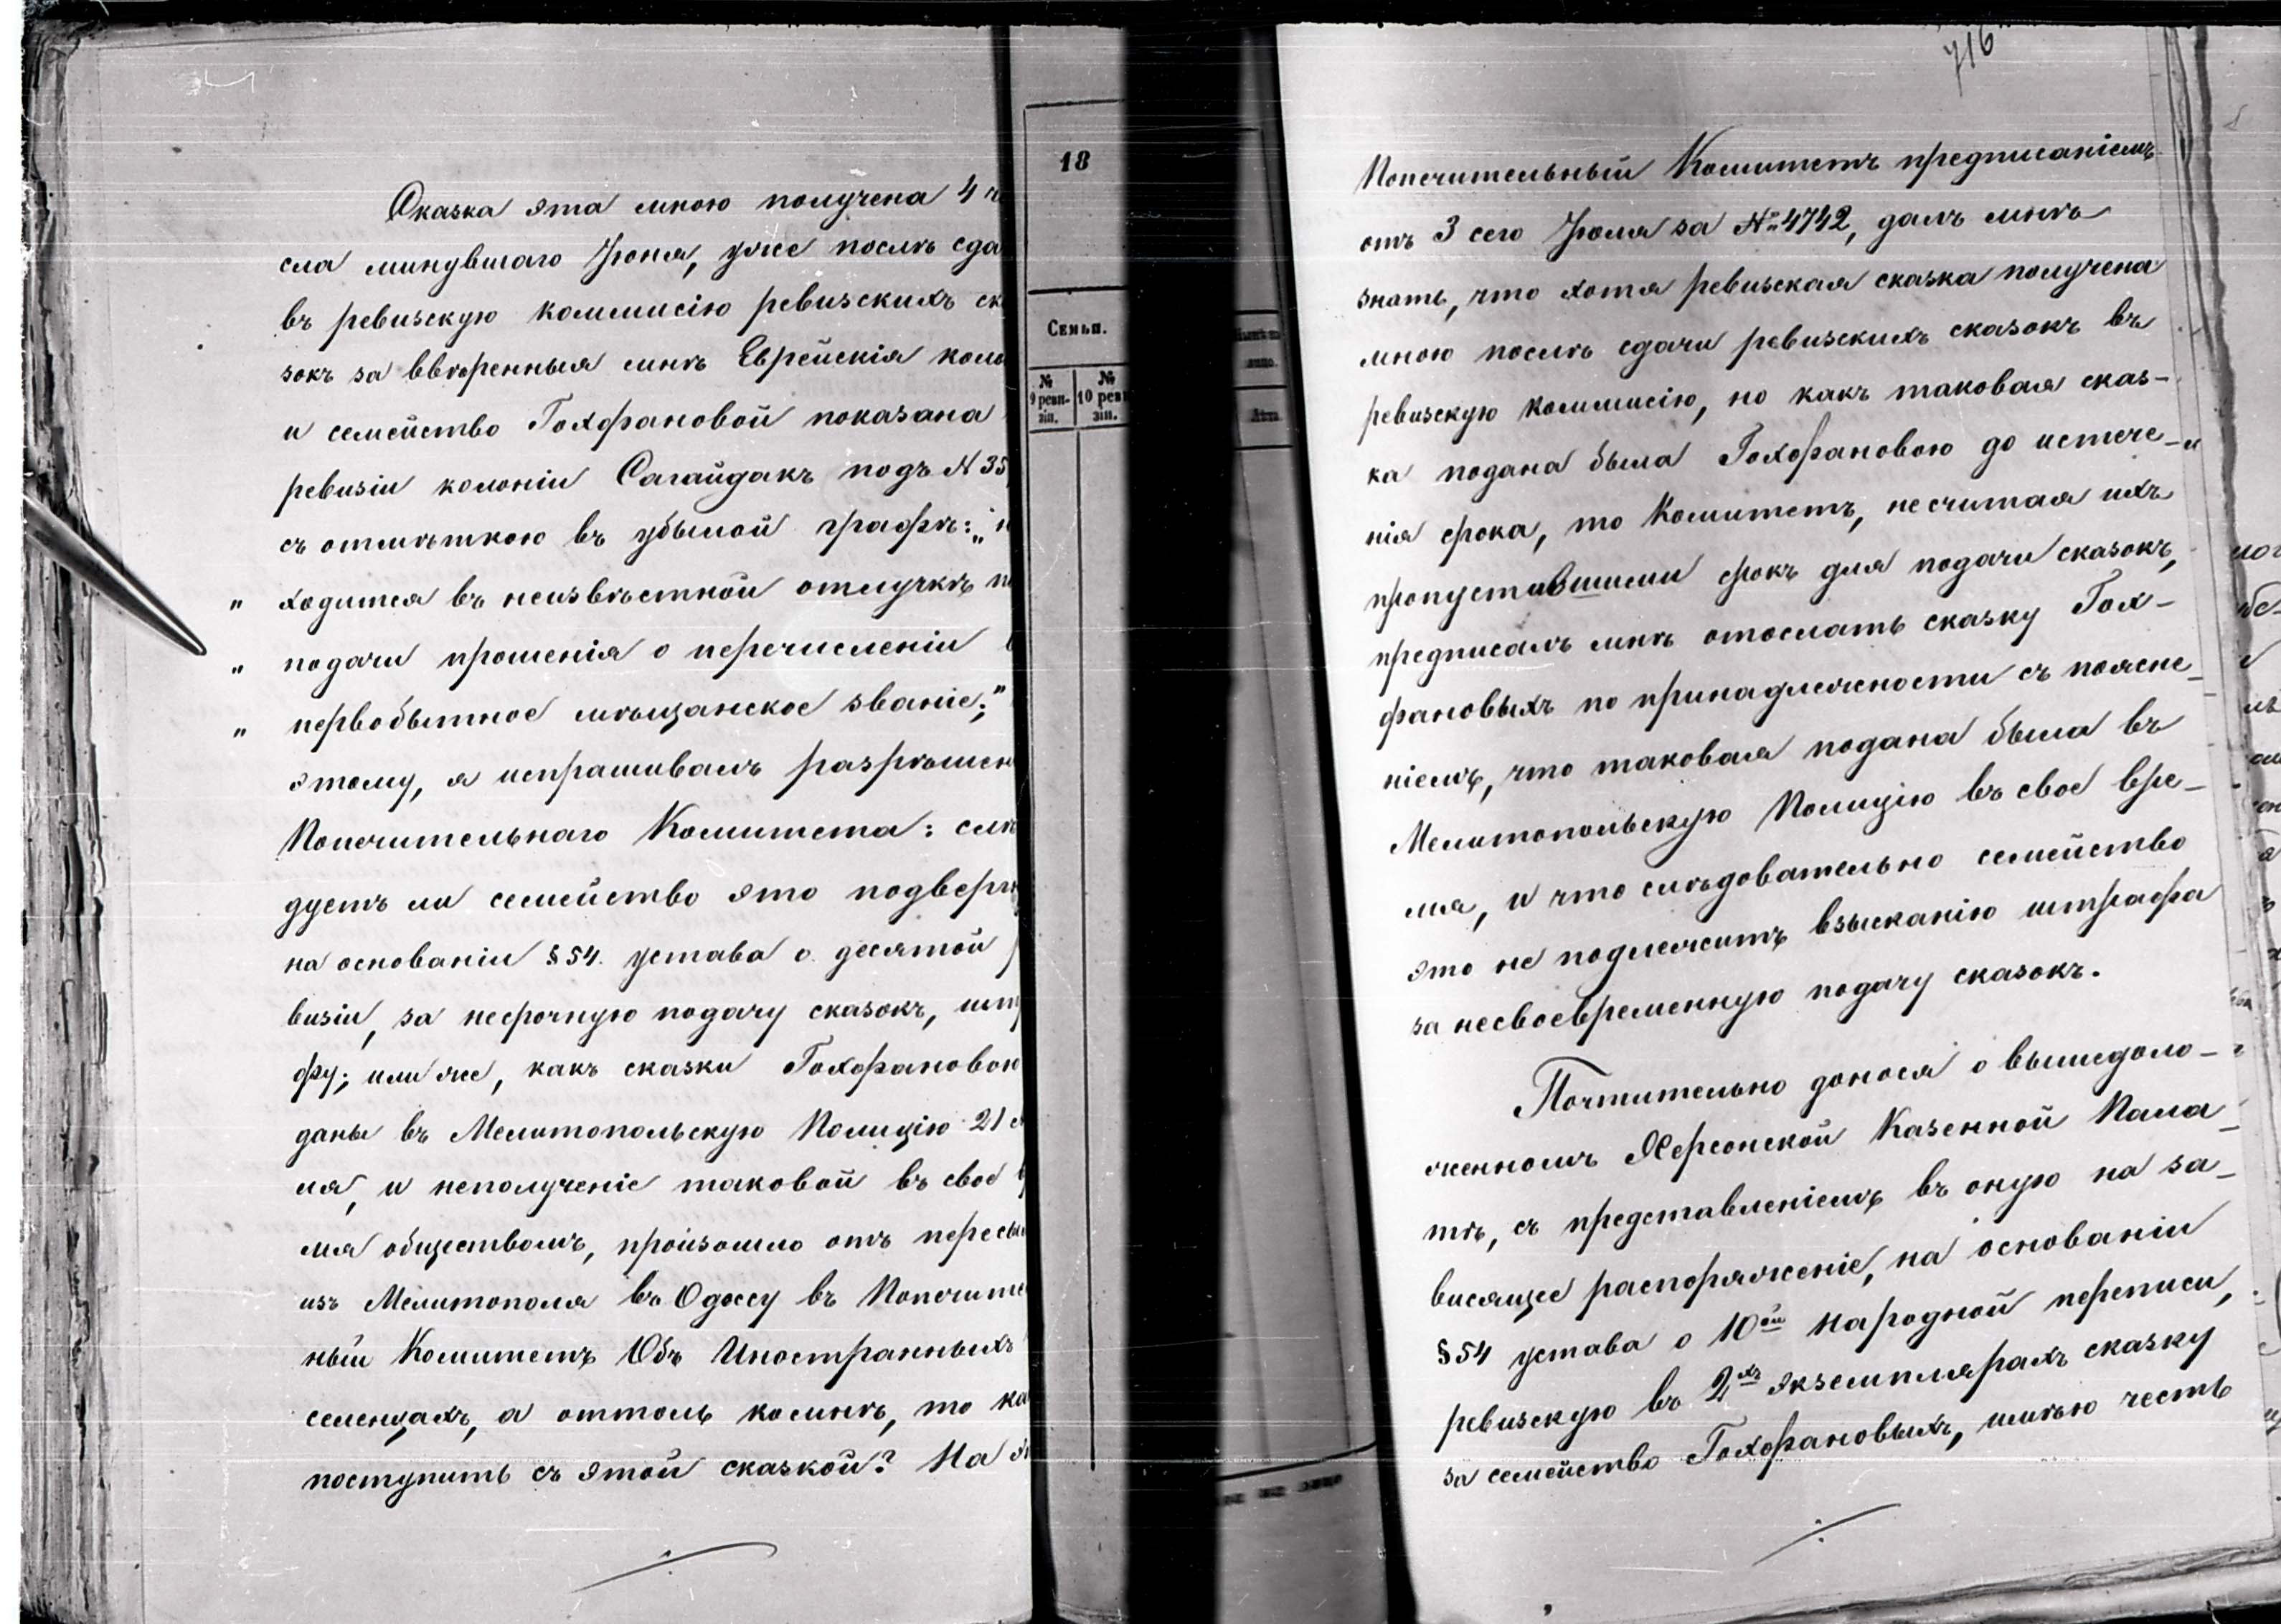 Сказка эта мною получена 4
сла минувшаго Іюня, уже послѣ сда
въ ревизскую коммисію ревизскихъ ск
зокъ за ввѣренныя мнѣ Еврейскія коло
и семейство Гохфановой показана
ревизіи колоніи Сагайдакъ подъ N 35
съ отмѣткою въ убылой графѣ: „н
„ ходится въ неизвѣстной отлучкѣ п
„ подачи прошенія о перечисленіи
„ первобытное мѣщанское званіе;"
этому, я испрашивалъ разрѣшен
Попечительнаго Комитета: слѣ
дуетъ ли семейство это подверг
на основаніи § 54. устава о десятой
визіи, за несрочную подачу сказокъ, шт
фу; или же, какъ сказки Гохфановою
даны въ Мелитопольскую Полицію 21
ля, и неполученіе таковой въ свое
мя обществомъ, произошло отъ пересы
изъ Мелитополя въ Одессу въ Попечите
ный Комитетъ Объ Иностранныхъ
селенцахъ, а оттоль ко мнѣ, то ка
поступить съ этой сказкой? На э
18
Семьи.
№ 9 реви-зіи.
№ 10 реви зіи.
лицо.
Лѣта.
716
Попечительный Комитетъ предписаніемъ
отъ 3 сего Іюля за № 4742, далъ мнѣ
знать, что хотя ревизская сказка получена
мною послѣ сдачи ревизскихъ сказокъ въ
ревизскую Коммисію, но какъ таковая сказ-
ка подана была Гохфановою до истече-
нія срока, то Комитетъ, не считая ихъ
пропустившими срокъ для подачи сказокъ,
предписалъ мнѣ отослать сказку Гох-
фановыхъ по принадлежности съ поясне-
ніемъ, что таковая подана была въ
Мелитопольскую Полицію въ свое вре-
мя, и что слѣдовательно семейство
это не подлежитъ взысканію штрафа
за несвоевременную подачу сказокъ.
Почтительно донося о вышедоло-
женномъ Херсонской Казенной Пала-
тѣ, съ представленіемъ въ оную на за-
висящее распоряженіе, на основаніи
§ 54 устава о 10ой народной переписи,
ревизскую въ 2хъ экземплярахъ сказку
за семейство Гохфановыхъ, имѣю честь